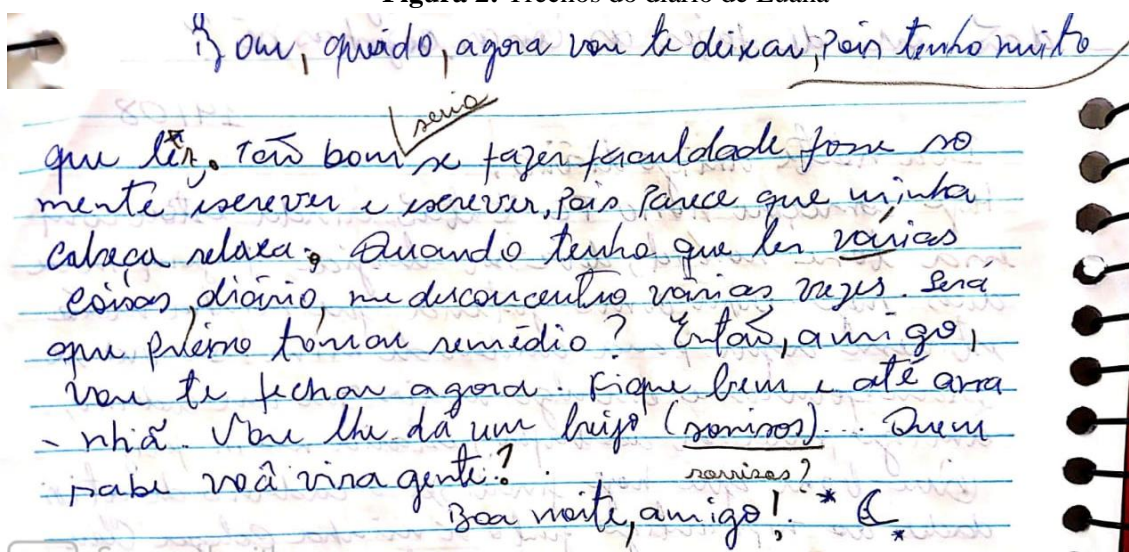 Figura 2: Trechos do diário de Luana
our, quiádo, agora vou te deixar, pois tenho muito
seria
que lêr. Taõ bom se fazer faculdade fosse so
mente escrever e escrever, pois parece que minha
cabeça relaxa; Quando tenho que ler várias
coisas, diário, me desconcentro várias vezes. Será
que preciso tomar remédio? Entaõ, amigo,
vou te fechar agora. Fique bem e até ama
- nhiã. Vou lhe dá um beijo (sonisos)... Quem
sabe você vira gente?
sorrisos?
Boa noite, amigo!